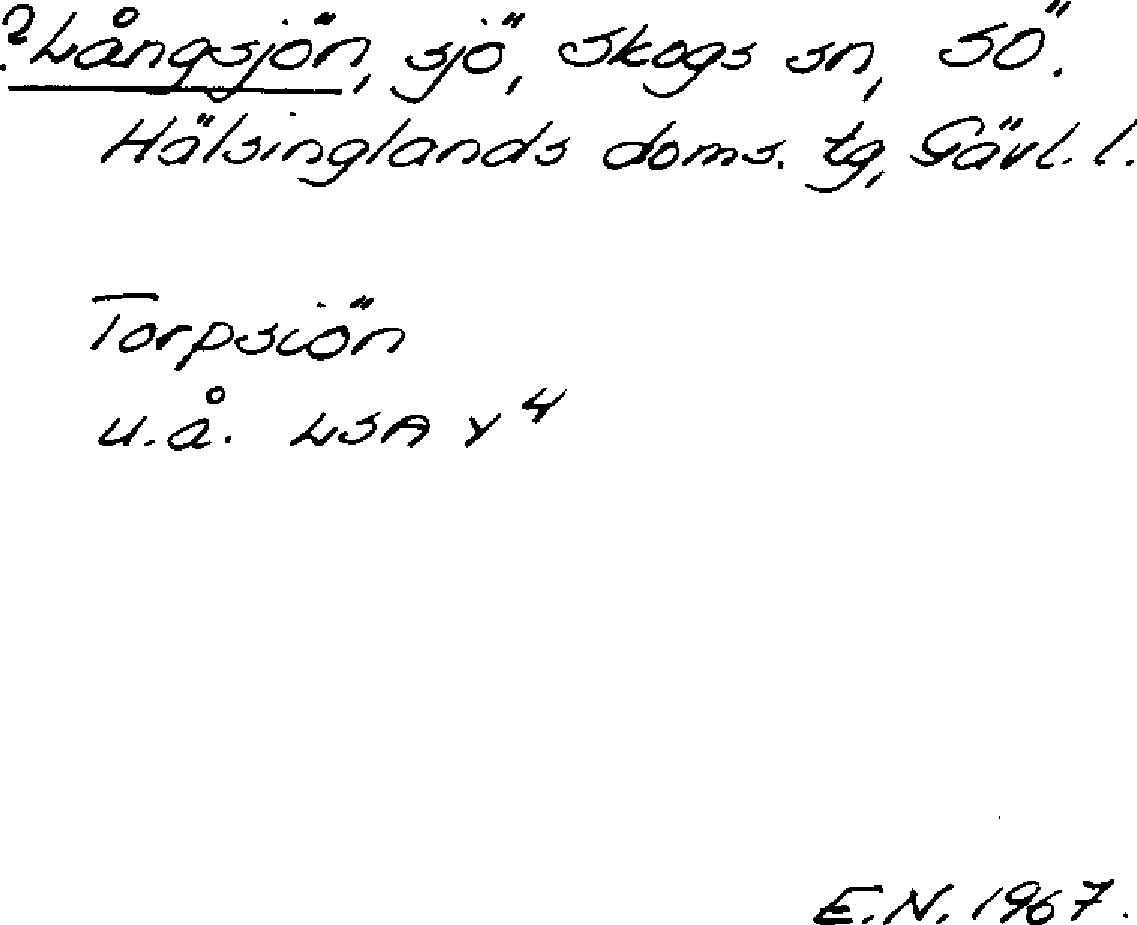 ?Långsjön, sjö, Skogs sn, SÖ.
Hälsinglands doms. tg, Gävl. l.
Torpsiön
u.å. LSA Y 4
E.N. 1967.